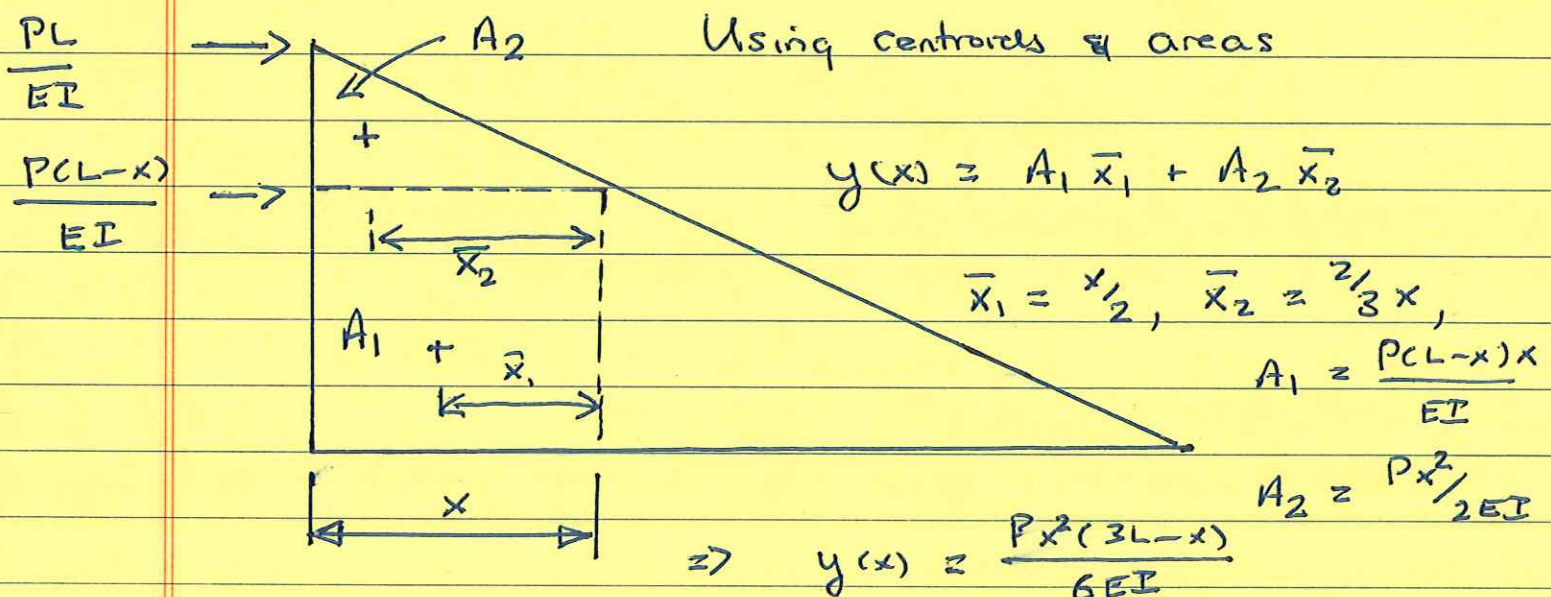 PL/EI → A2 Using centroids & areas
P(L-x)/EI → y(x) = A1 x̄1 + A2 x̄2
+
x̄2
x̄1 = x/2, x̄2 = 2/3 x,
A1 + x̄1
A1 = P(L-x)x/EI
A2 = Px²/2EI
x
=> y(x) = Px²(3L-x)/6EI